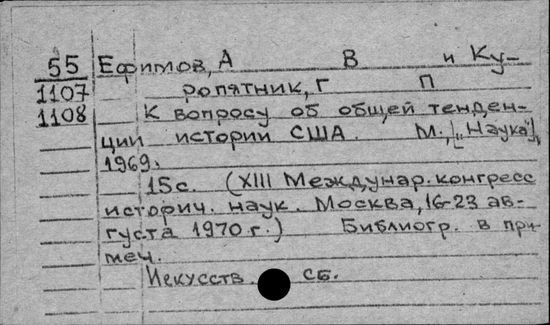 55 Ефимов, А В и Ку-
1107 ропятник, Г П
1108 К вопросу об общей тенден-
ции истории США. М., [„Наука"],
1969.
15с. (XIII Междунар. конгресс
историч. наук. Москва, 16-23 ав-
густа 1970 г.) Библиогр. в при-
меч.
Искусств. сб.